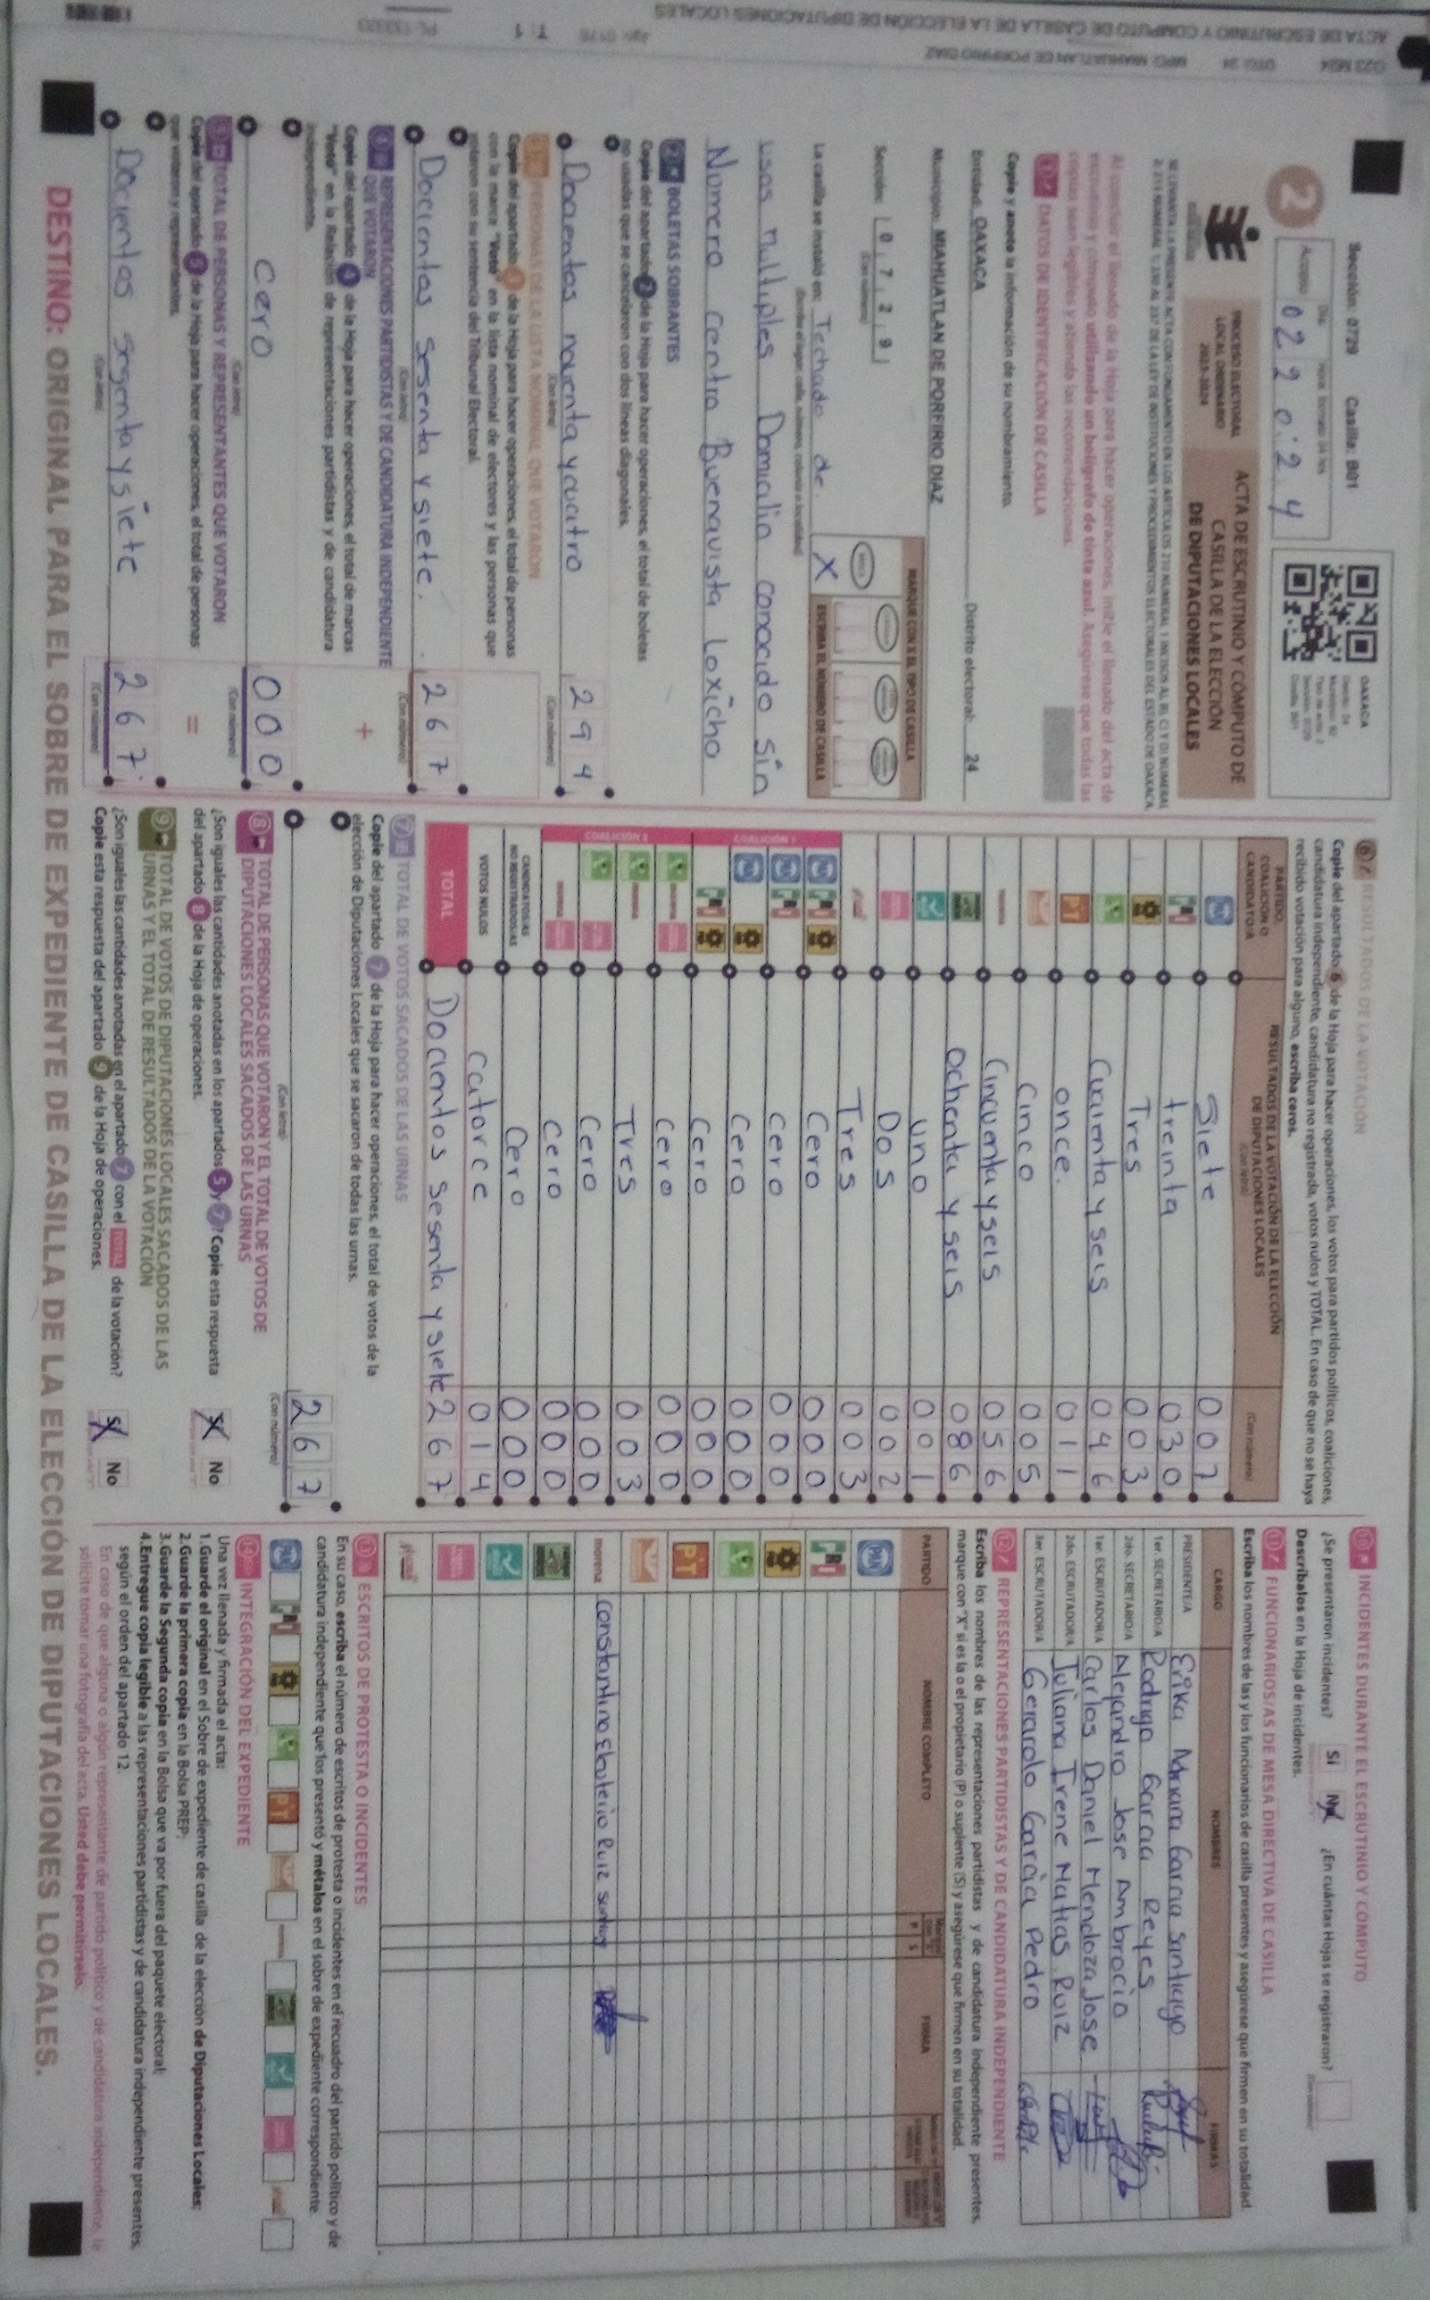 Sección: 0729 Casilla: B01
OAXACA
2
Acopio
0 2 2 0 : 2 4
PROCESO ELECTORAL
LOCAL ORDINARIO
2023-2024
ACTA DE ESCRUTINIO Y CÓMPUTO DE
CASILLA DE LA ELECCIÓN
DE DIPUTACIONES LOCALES
Al concluir el llenado de la Hoja para hacer operaciones, inicie el llenado del acta de
escrutinio y cómputo utilizando un bolígrafo de tinta azul. Asegúrese que todas las
copias sean legibles y atienda las recomendaciones.
DATOS DE IDENTIFICACIÓN DE CASILLA
Copie y anote la información de su nombramiento.
Entidad: OAXACA Distrito electoral: 24
Municipio: MIAHUATLAN DE PORFIRIO DIAZ
Sección: 0 7 2 9
(Con número)
MARQUE CON X EL TIPO DE CASILLA
X
ESCRIBA EL NÚMERO DE CASILLA
La casilla se instaló en: Techado de
usos multiples Domicilio conocido sin
Numero centro Buenavista Loxicho
2 BOLETAS SOBRANTES
Copie del apartado 2 de la Hoja para hacer operaciones, el total de boletas
no usadas que se cancelaron con dos líneas diagonales.
Docientos noventa y cuatro 294
(Con letra) (Con número)
PERSONAS DE LA LISTA NOMINAL QUE VOTARON
Copie del apartado 3 de la Hoja para hacer operaciones, el total de personas
con la marca "Votó" en la lista nominal de electores y las personas que
votaron con su sentencia del Tribunal Electoral.
Docientos sesenta y siete. 267
(Con letra) (Con número)
REPRESENTACIONES PARTIDISTAS Y DE CANDIDATURA INDEPENDIENTE
QUE VOTARON
+
Copie del apartado 4 de la Hoja para hacer operaciones, el total de marcas
"Votó" en la Relación de representaciones partidistas y de candidatura
independiente.
cero 000
(Con letra) (Con número)
TOTAL DE PERSONAS Y REPRESENTANTES QUE VOTARON
=
Copie del apartado 5 de la Hoja para hacer operaciones, el total de personas
que votaron y representantes.
Docientos sesenta y siete 267
(Con letra) (Con número)
6 RESULTADOS DE LA VOTACIÓN
Copie del apartado 6 de la Hoja para hacer operaciones, los votos para partidos políticos, coaliciones,
candidatura independiente, candidatura no registrada, votos nulos y TOTAL. En caso de que no se haya
recibido votación para alguno, escriba ceros.
PARTIDO,
COALICIÓN O
CANDIDATO/A
RESULTADOS DE LA VOTACIÓN DE LA ELECCIÓN
DE DIPUTACIONES LOCALES
(Con letra) (Con número)
Siete 007
treinta 030
Tres 003
Cuarenta y seis 046
once. 011
cinco 005
Cincuenta y seis 056
ochenta y seis 086
uno 001
Dos 002
Tres 003
COALICIÓN 1
Cero 000
cero 000
Cero 000
Cero 000
COALICIÓN 2
cero 000
Tres 003
Cero 000
cero 000
CANDIDATOS/AS
NO REGISTRADOS/AS
Cero 000
VOTOS NULOS catorce 014
TOTAL Docientos sesenta y siete 267
7 TOTAL DE VOTOS SACADOS DE LAS URNAS
Copie del apartado 7 de la Hoja para hacer operaciones, el total de votos de la
elección de Diputaciones Locales que se sacaron de todas las urnas.
267
(Con letra) (Con número)
8 TOTAL DE PERSONAS QUE VOTARON Y EL TOTAL DE VOTOS DE
DIPUTACIONES LOCALES SACADOS DE LAS URNAS
¿Son iguales las cantidades anotadas en los apartados 5 y 7? Copie esta respuesta
del apartado 8 de la Hoja de operaciones.
X No
9 TOTAL DE VOTOS DE DIPUTACIONES LOCALES SACADOS DE LAS
URNAS Y EL TOTAL DE RESULTADOS DE LA VOTACIÓN
¿Son iguales las cantidades anotadas en el apartado 7 con el TOTAL de la votación?
Copie esta respuesta del apartado 9 de la Hoja de operaciones.
X No
10 INCIDENTES DURANTE EL ESCRUTINIO Y CÓMPUTO
¿Se presentaron incidentes? Sí No ¿En cuántas Hojas se registraron?
Descríbalos en la Hoja de incidentes.
11 FUNCIONARIOS/AS DE MESA DIRECTIVA DE CASILLA
Escriba los nombres de las y los funcionarios de casilla presentes y asegúrese que firmen en su totalidad.
CARGO NOMBRES FIRMAS
PRESIDENTE/A Erika García Santiago
1er. SECRETARIO/A Rodrigo García Reyes
2do. SECRETARIO/A Alejandro Jose Ambrocio
1er. ESCRUTADOR/A Carlos Daniel Mendoza Jose
2do. ESCRUTADOR/A Juliana Irene Matias Ruiz
3er. ESCRUTADOR/A Gerardo García Pedro
12 REPRESENTACIONES PARTIDISTAS Y DE CANDIDATURA INDEPENDIENTE
Escriba los nombres de las representaciones partidistas y de candidatura independiente presentes,
marque con "X" si es la o el propietario (P) o suplente (S) y asegúrese que firmen en su totalidad.
PARTIDO NOMBRE COMPLETO P S FIRMA
PAN
PT
morena Constantino Eleuterio Ruiz
13 ESCRITOS DE PROTESTA O INCIDENTES
En su caso, escriba el número de escritos de protesta o incidentes en el recuadro del partido político y de
candidatura independiente que los presentó y métalos en el sobre de expediente correspondiente.
INTEGRACIÓN DEL EXPEDIENTE
Una vez llenada y firmada el acta:
1.Guarde el original en el Sobre de expediente de casilla de la elección de Diputaciones Locales;
2.Guarde la primera copia en la Bolsa PREP;
3.Guarde la Segunda copia en la Bolsa que va por fuera del paquete electoral;
4.Entregue copia legible a las representaciones partidistas y de candidatura independiente presentes,
según el orden del apartado 12.
En caso de que alguna o algún representante de partido político y de candidatura independiente, le
solicite tomar una fotografía del acta. Usted debe permitírselo.
DESTINO: ORIGINAL PARA EL SOBRE DE EXPEDIENTE DE CASILLA DE LA ELECCIÓN DE DIPUTACIONES LOCALES.
DTO: 24 MPO: MIAHUATLAN DE PORFIRIO DIAZ
ACTA DE ESCRUTINIO Y COMPUTO DE CASILLA DE LA ELECCIÓN DE DIPUTACIONES LOCALES
T: 1